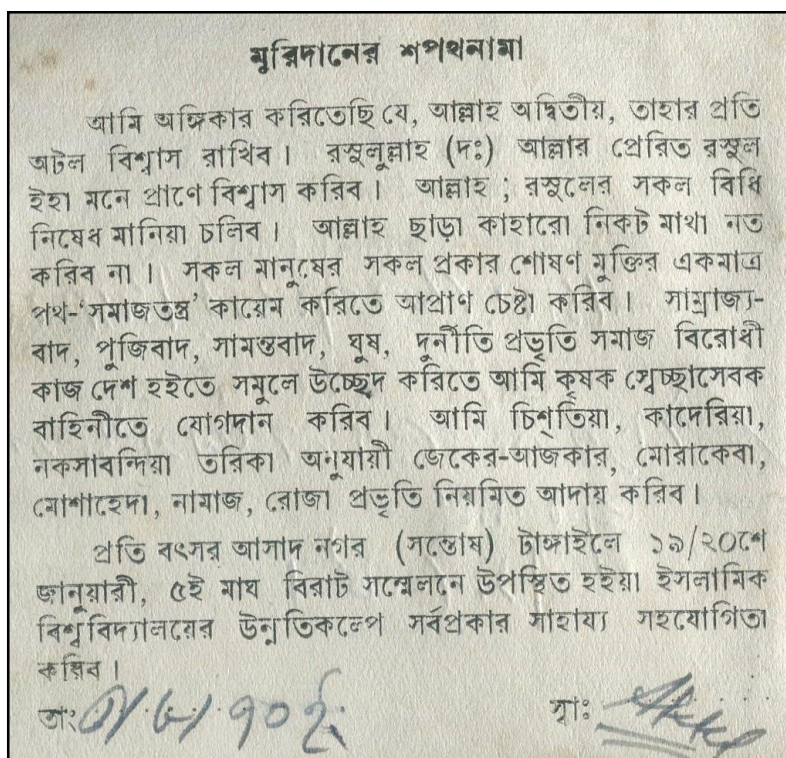 মুরিদানের শপথনামা
আমি অঙ্গিকার করিতেছি যে, আল্লাহ অদ্বিতীয়, তাহার প্রতি
অটল বিশ্বাস রাখিব। রসুলুল্লাহ (দঃ) আল্লার প্রেরিত রসুল
ইহা মনে প্রাণে বিশ্বাস করিব। আল্লাহ ; রসুলের সকল বিধি
নিষেধ মানিয়া চলিব। আল্লাহ ছাড়া কাহারো নিকট মাথা নত
করিব না। সকল মানুষের সকল প্রকার শোষণ মুক্তির একমাত্র
পথ-‘সমাজতন্ত্র’ কায়েম করিতে আপ্রাণ চেষ্টা করিব। সাম্রাজ্য-
বাদ, পুজিবাদ, সামন্তবাদ, ঘুষ, দুর্নীতি প্রভৃতি সমাজ বিরোধী
কাজ দেশ হইতে সমুলে উচ্ছেদ করিতে আমি কৃষক স্বেচ্ছাসেবক
বাহিনীতে যোগদান করিব। আমি চিশ্‌তিয়া, কাদেরিয়া,
নকসাবন্দিয়া তরিকা অনুযায়ী জেকের-আজকার, মোরাকেবা,
মোশাহেদা, নামাজ, রোজা প্রভৃতি নিয়মিত আদায় করিব।
প্রতি বৎসর আসাদ নগর (সন্তোষ) টাঙ্গাইলে ১৯/২০শে
জানুয়ারী, ৫ই মাঘ বিরাট সম্মেলনে উপস্থিত হইয়া ইসলামিক
বিশ্ববিদ্যালয়ের উন্নতিকল্পে সর্বপ্রকার সাহায্য সহযোগিতা
করিব।
তাং স্বাঃ